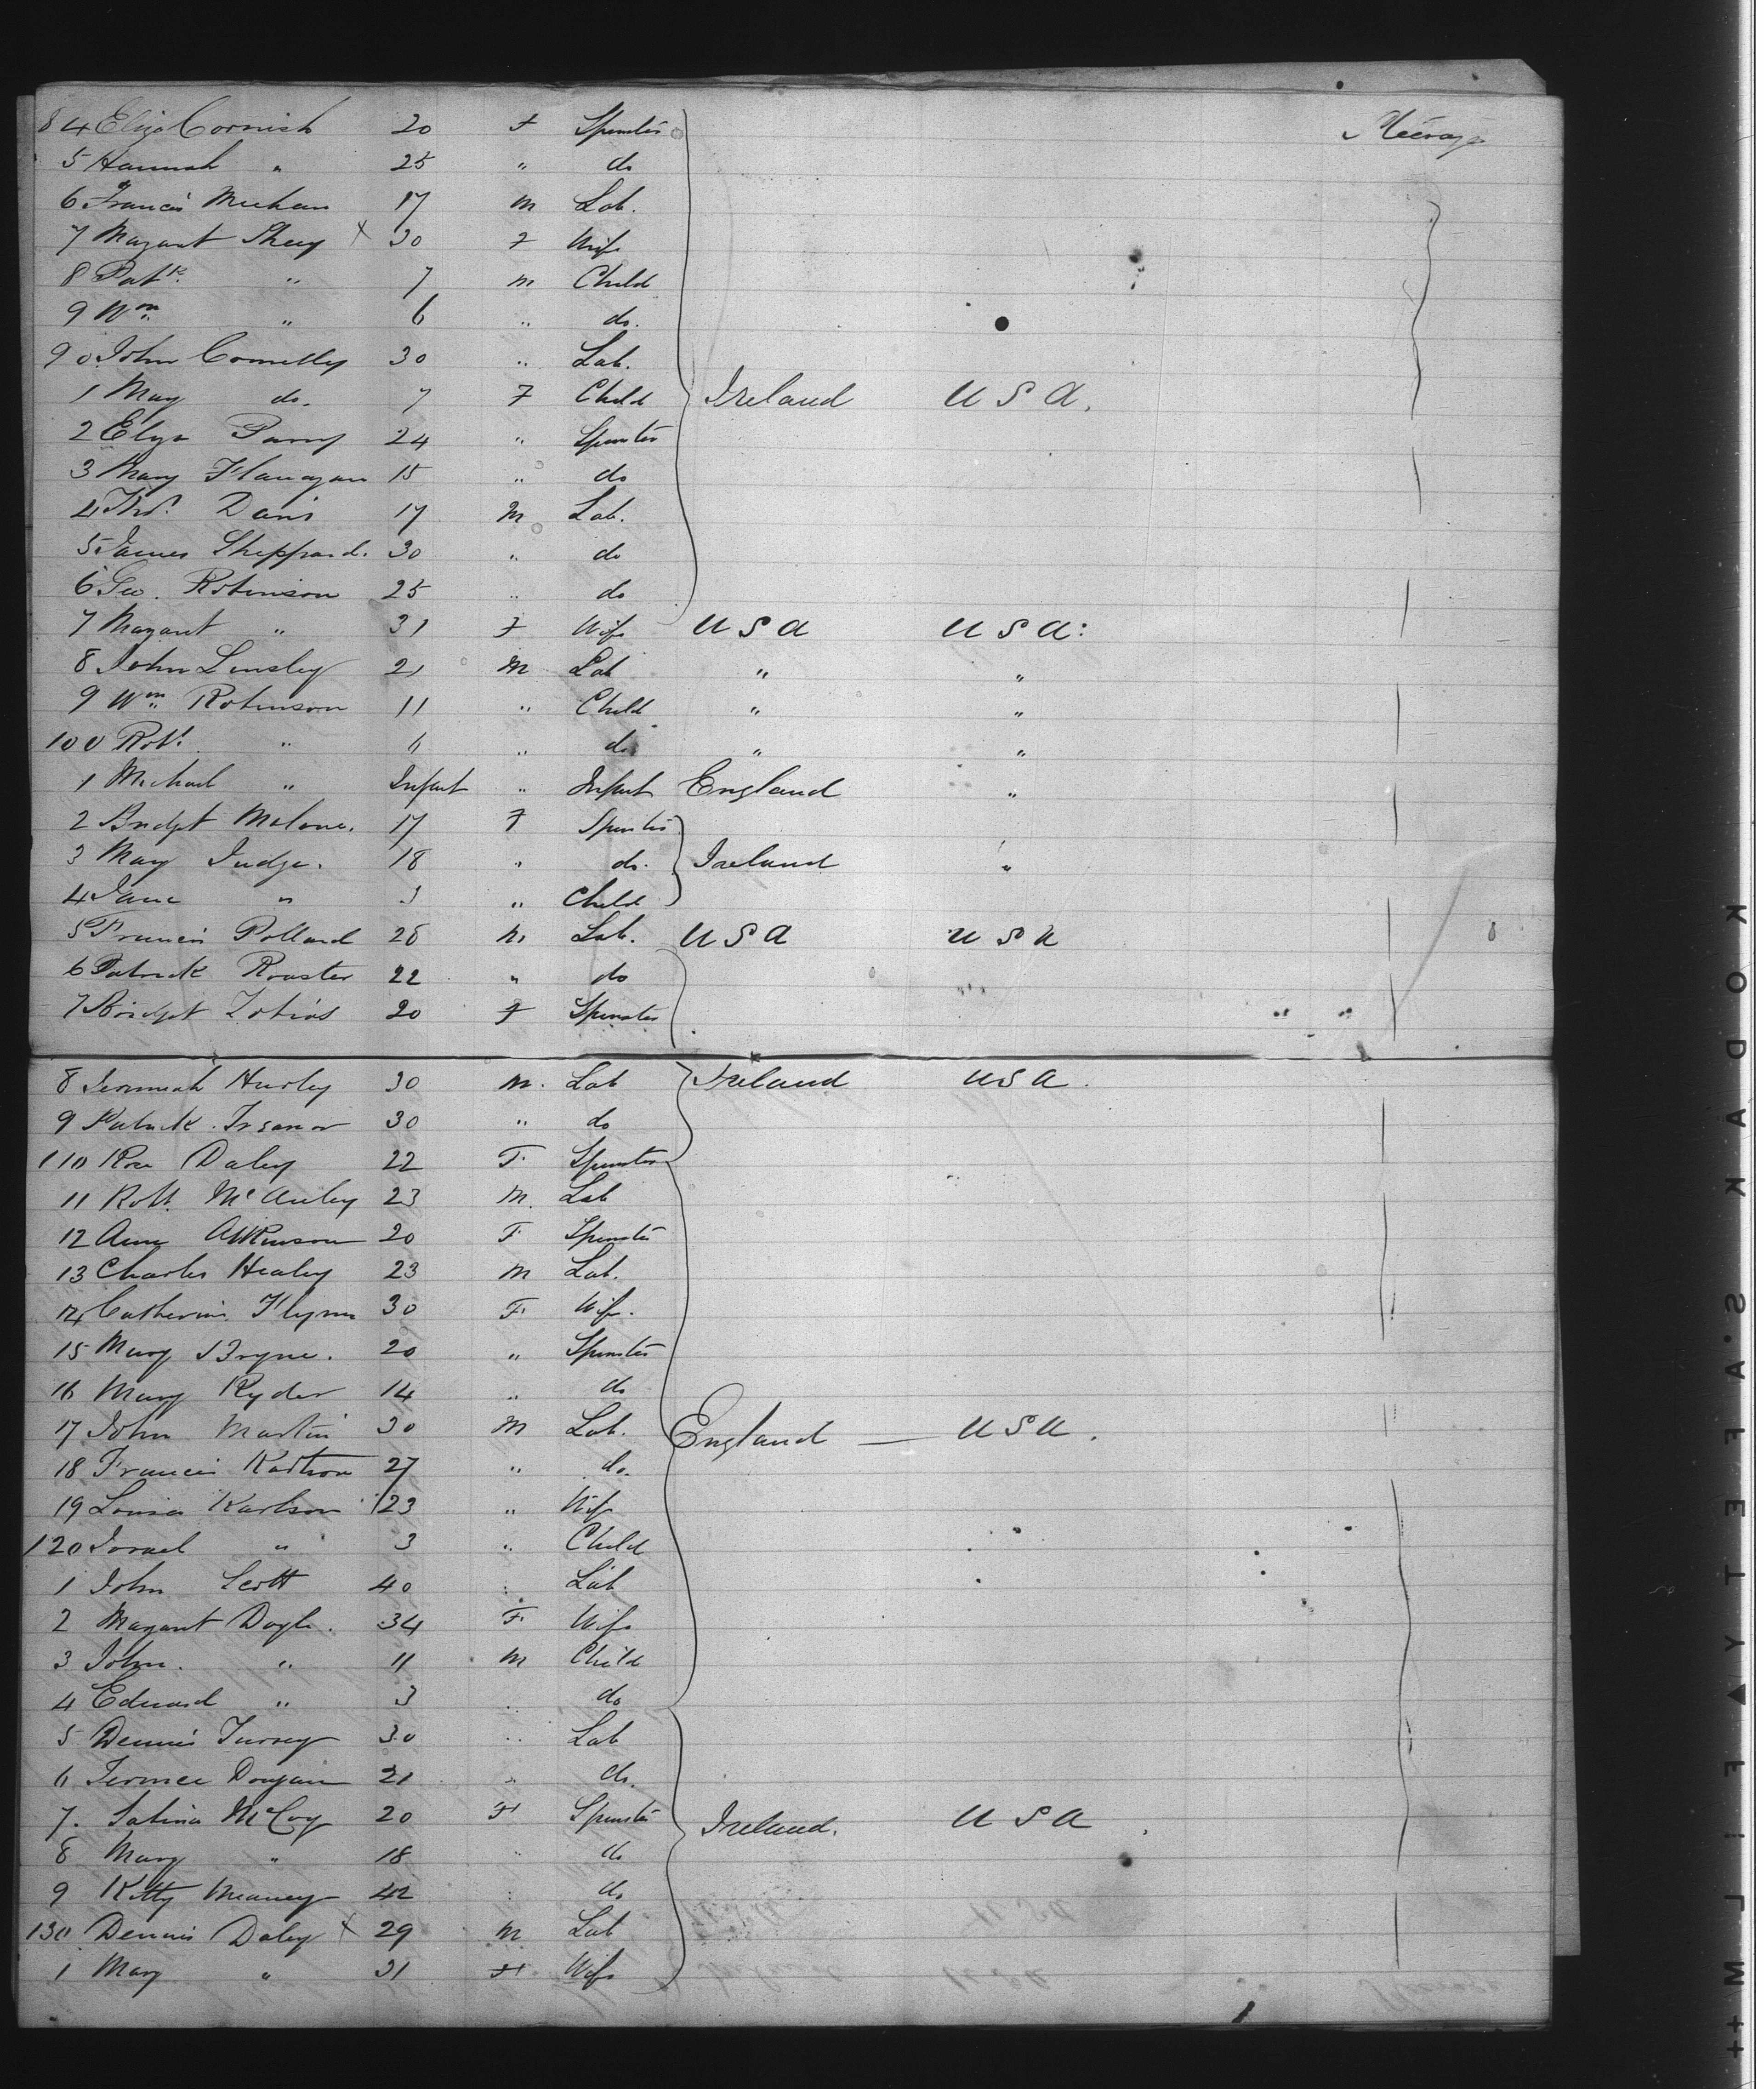 84 Eliza Cornish 20 F Spinster Steerage
5 Hannah " 25 " do
6 Francis Meehan 17 M Lab.
7 Margaret Sheey x 30 F Wife
8 Patk. " 7 M Child
9 Wm. " 6 " do.
90 John Connelly 30 " Lab.
1 Mary do. 7 F Child Ireland U S A.
2 Eliza Parry 24 " Spinster
3 Mary Flanagan 15 " do
4 Thos. Davis 17 M Lab.
5 James Sheppard. 30 " do
6 Geo. Robinson 25 " do
7 Margaret " 31 F Wife U S A U S A:
8 John Linsley 21 M Lab " "
9 Wm. Robinson 11 " Child " "
100 Robt. " 6 " do " "
1 Michael " Infant " Infant England "
2 Bridget Malone. 17 F Spinster
3 Mary Judge. 18 " do. Ireland "
4 Jane " 3 " Child
5 Francis Pollard 28 M Lab. U S A U S A
6 Patrick Rouster 22 " do
7 Bridget 20 F Spinster
8 Jeremiah Hurley 30 M. Lab Ireland U S A.
9 Patrick Treanor 30 " do
110 Rose Daley 22 F. Spinster
11 Robt. McAuley 23 M. Lab
12 Ann Atkinson 20 F Spinster
13 Charles Healey 23 M Lab.
14 Catherine Flynn 30 F. Wife.
15 Mary Bryne. 20 " Spinster
16 Mary Ryder 14 " do
17 John Martin 30 M Lab. England — U S A.
18 Francis Karlson 27 " do.
19 Louisa Karlson 23 " Wife
120 Israel " 3 " Child
1 John Scott 40 " Lab
2 Margaret Doyle. 34 F. Wife
3 John. " 11 M Child
4 Edward " 3 " do
5 Dennis Turvey 30 " Lab
6 Terence Dougan 21 " do.
7. Sabina McCoy 20 F Spinster Ireland. U S A
8 Mary " 18 " do
9 Kitty Meaney 42 " do
130 Dennis Daley x 29 M Lab
1 Mary " 31 F Wife
KODAK S.A.FETY ▲ FILM ++